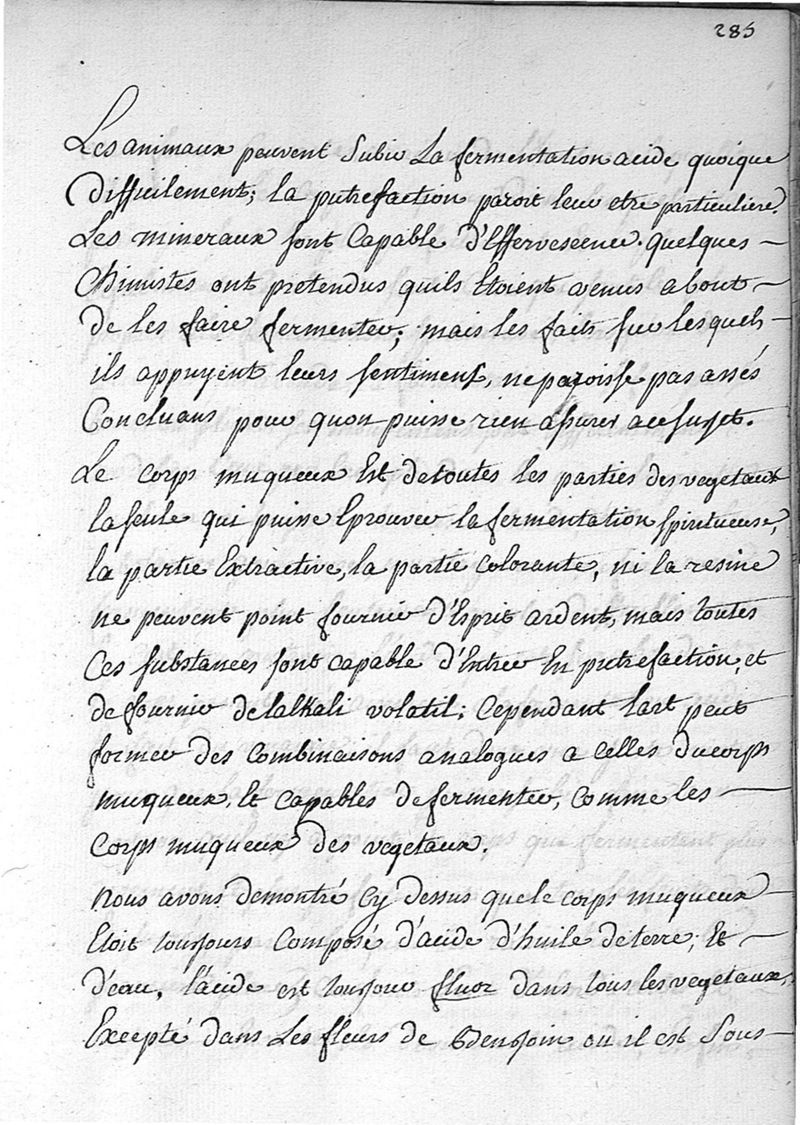 285
Les animaux peuvent Subir La fermentation acide quoique
Difficilement; la putrefaction paroit leur etre particuliere.
Les mineraux sont Capable d'Effervescence. quelques
Chimistes ont pretendus quils Etoient venus about
de les faire fermenter; mais les faits sur lesquels
ils appuyent leurs sentiment, ne paroisse pas assés
Concluans pour quon puisse rien assurer a ce sujet.
Le corps muqueux Est de toutes les parties des vegetaux
la seule qui puisse Eprouver la fermentation spiritueuse,
la partie Extractive, la partie colorante, ni la resine
ne peuvent point fournir d'Esprit ardent, mais toutes
Ces substances sont capable d'Entrer En putrefaction, et
de fournir de lalkali volatil; Cependant lart peut
former des Combinaisons analogues a celles du corps
muqueux, Et capables de fermenter, comme les
Corps muqueux des vegetaux.
Nous avons demontré Cy dessus que le corps muqueux
Etoit toujours Composé d'acide d'huile de terre, Et
d'eau, l'acide est toujour fluor dans tous les vegetaux,
Excepté dans Les fleurs de Benjoin ou il est Sous